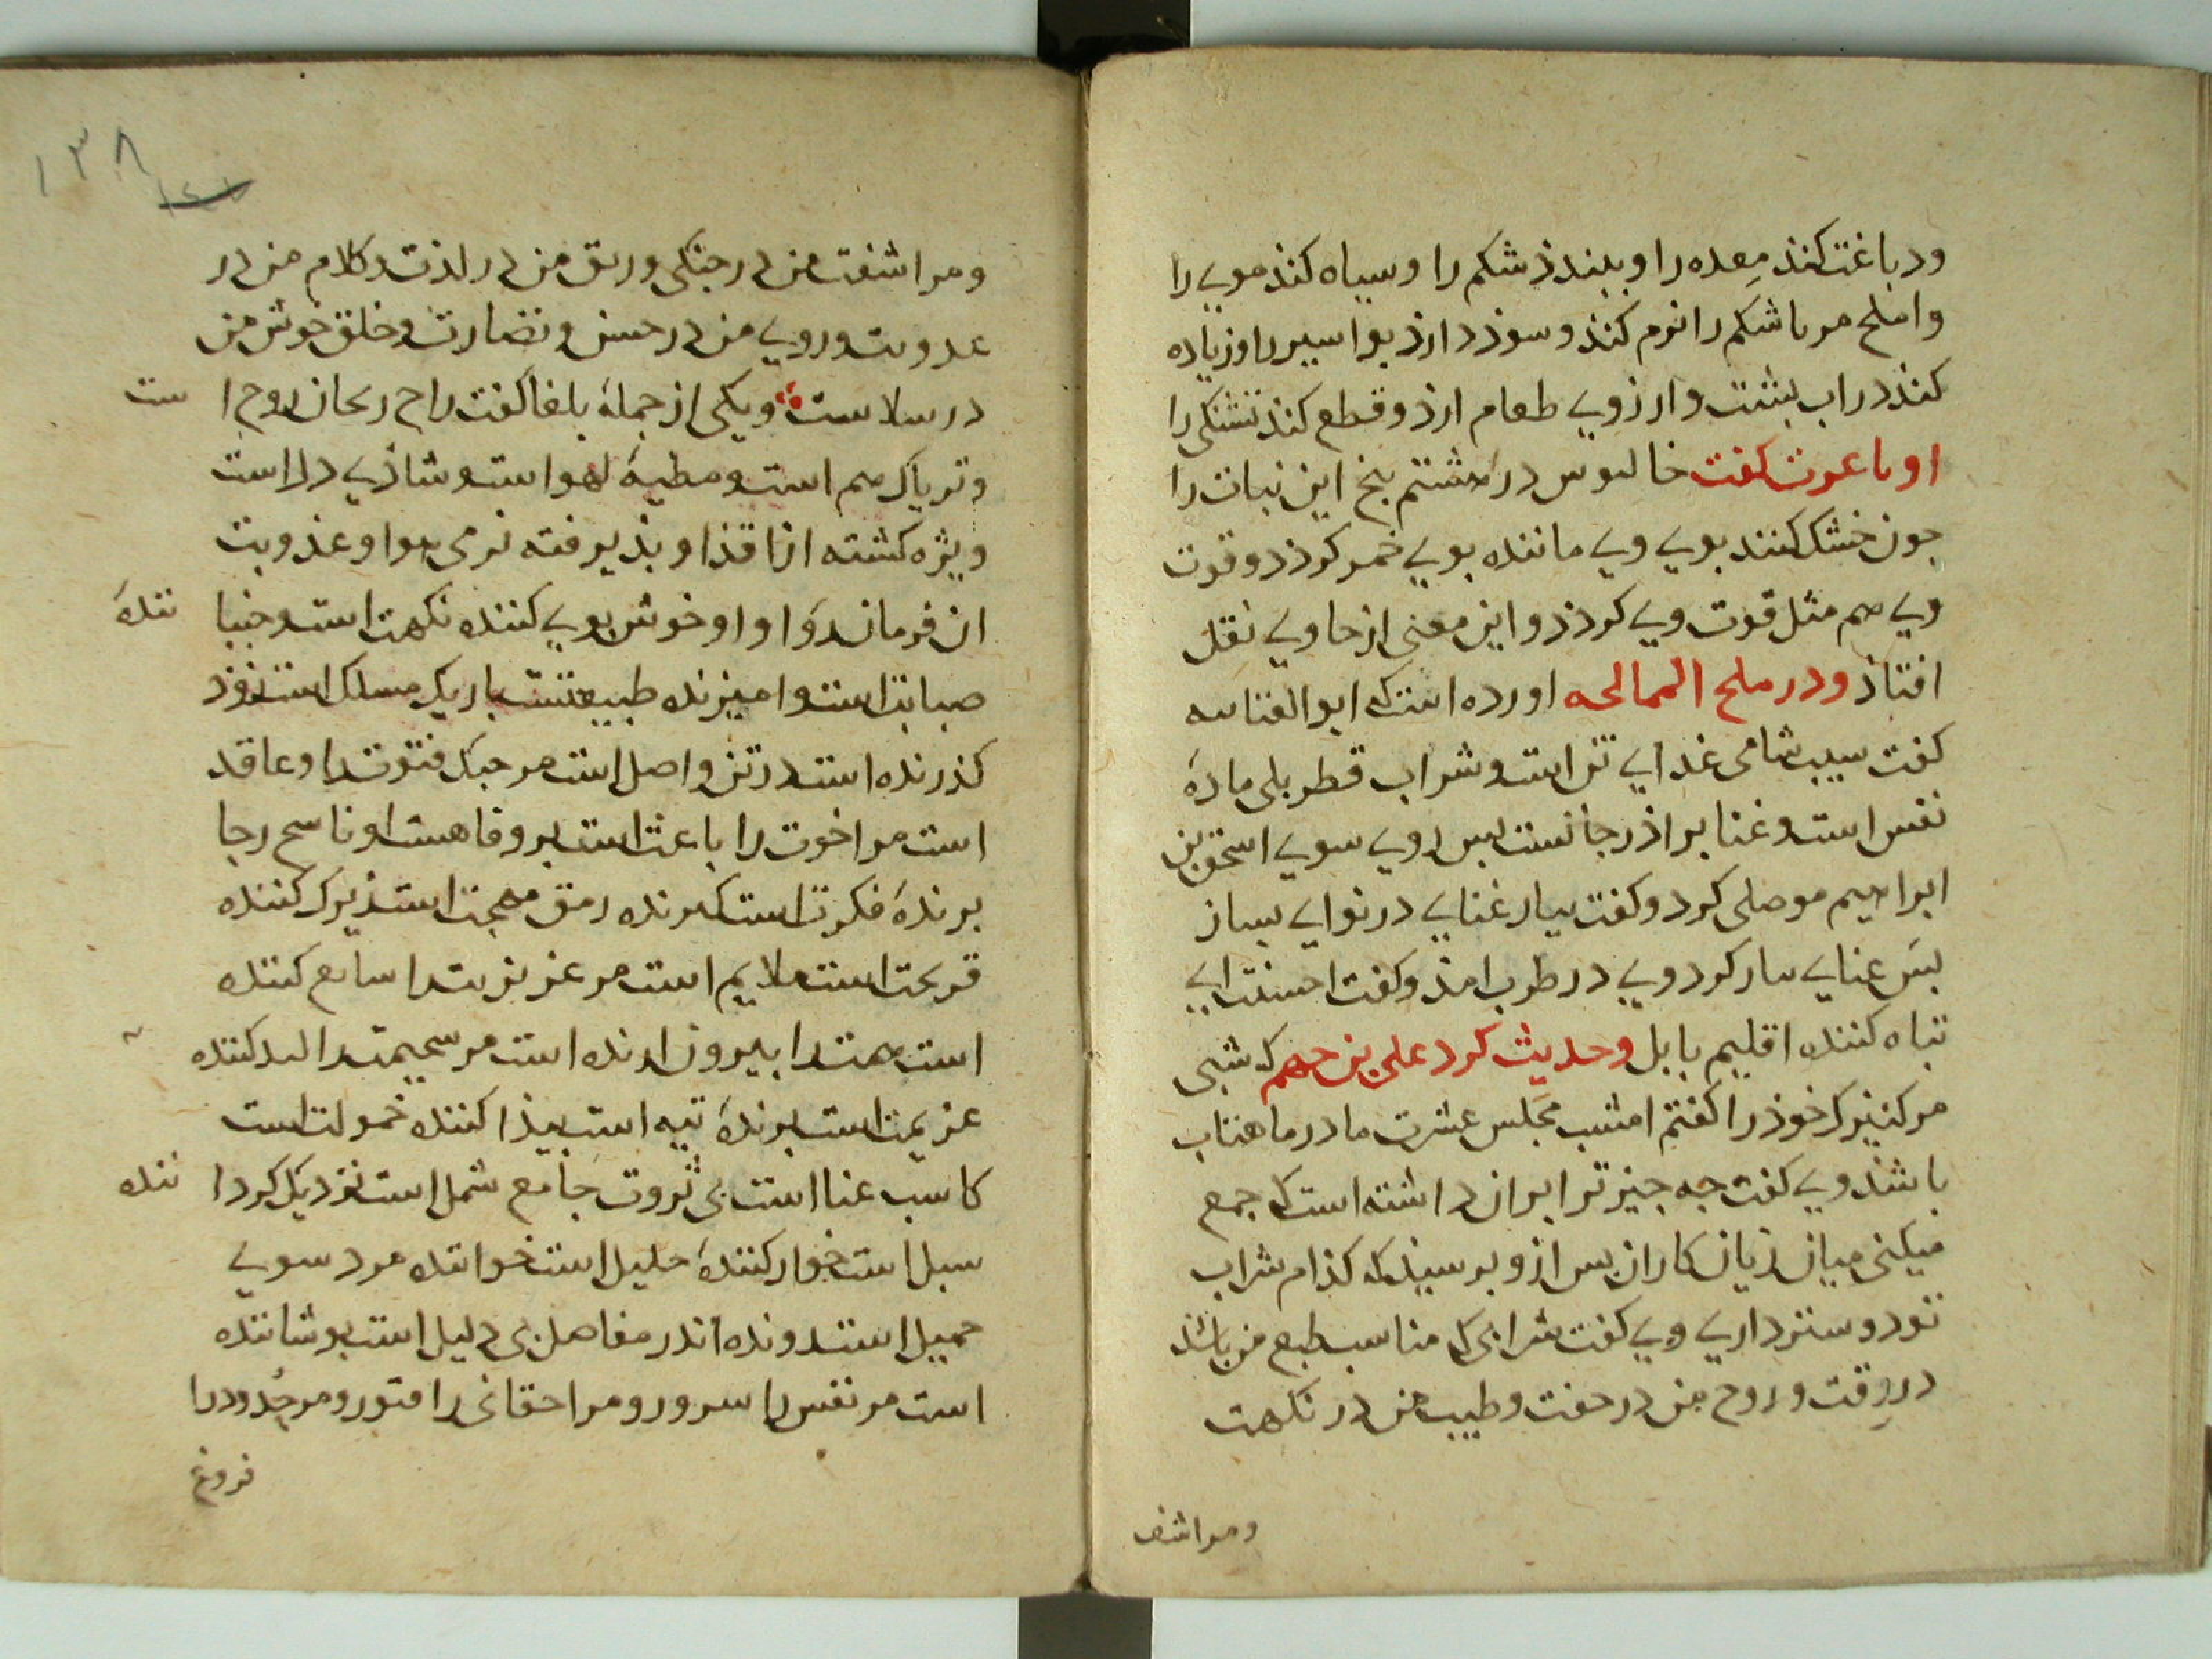 ودباغت کنذ معده را و ببندذ شکم را و سیاه کنذ موی را
واملح مربا شکم را نرم کنذ و سوذ دارذ بواسیر را و زیاده
کنذ در اب پشت و ارزوی طعام ارذ و قطع کنذ تشنکی را
کفت در هشتم بخ این نبات را
جون خشک کنند بوی وی ماننده بوی خمر کردذ و قوت
وی هم مثل قوت وی کردذ و این معنی از حاوی نقل
افتاذ ودر ملح الممالحه اورده است که ابو العتاهیه
کفت سیب شامی غدای تن است و شراب قطربلی مادهٔ
نفس است و غنا براذر جانست بس روی سوی اسحق بن
ابراهیم موصلی کرد و کفت بیار غنایی در نوای بساز
بس غنایی ساز کرد وی در طرب امذ و کفت احسنت ای
تباه کننده اقلیم بابل وحدیث کرد علی بن جهم که شبی
مر کنیزک خوذ را کفتم امشب مجلس عشرت ما در ماهتاب
باشذ وی کفت جه جیز ترا بران داشته است که جمع
میکنی میان زیان کاران بس ازو برسیذ که کذام شراب
تو دوستر داری وی کفت شرابی که مناسب طبع من باشذ
در رقت و روح من در خفت و طیب من در نکهت
ومراشف
۱۳۸
ومراشفت من در جنکی و ریق من در لذت و کلام من در
عذوبت و روی من در حسن و نضارت و خلق خوش من
در سلاست ویکی از جملهٔ بلغا کفت راح ریحان روح است
وتریاک هم است و مطیهٔ لهو است و شاذی دل است
ویژه کشته از اقذا و بذیرفته نرمی هوا و عذوبت
ان فرمان روا او او خوش بوی کننده نکهت است و جنباننده
صبابت است و امیزنده طبیعتست باریک مسلک است نفوذ
کذرنده است در تن واصل است مر حبک فتوت را و عاقد
است مر اخوت را باعث است بر وفاهست او ناسح رجا
برندهٔ فکرت است کیرنده رمق مهجت است ذیرک کننده
قریحت است ملایم است مر غریزت را سایع کننده
است همت را بیرون ارنده است مر سخیمت را کننده
عزیمت است برندهٔ تیه است بیذا کننده خمولت است
کاسب عنا است بی ثروت جامع شمل است نزدیک کرداننده
سبل است خوار کنندهٔ جلیل است خواننده مرد سوی
جمیل است دونده اندر مفاصل بی دلیل است بوشاننده
است مر نفس را سرور و مر احقانی را فتور و مر خدود را
فروغ